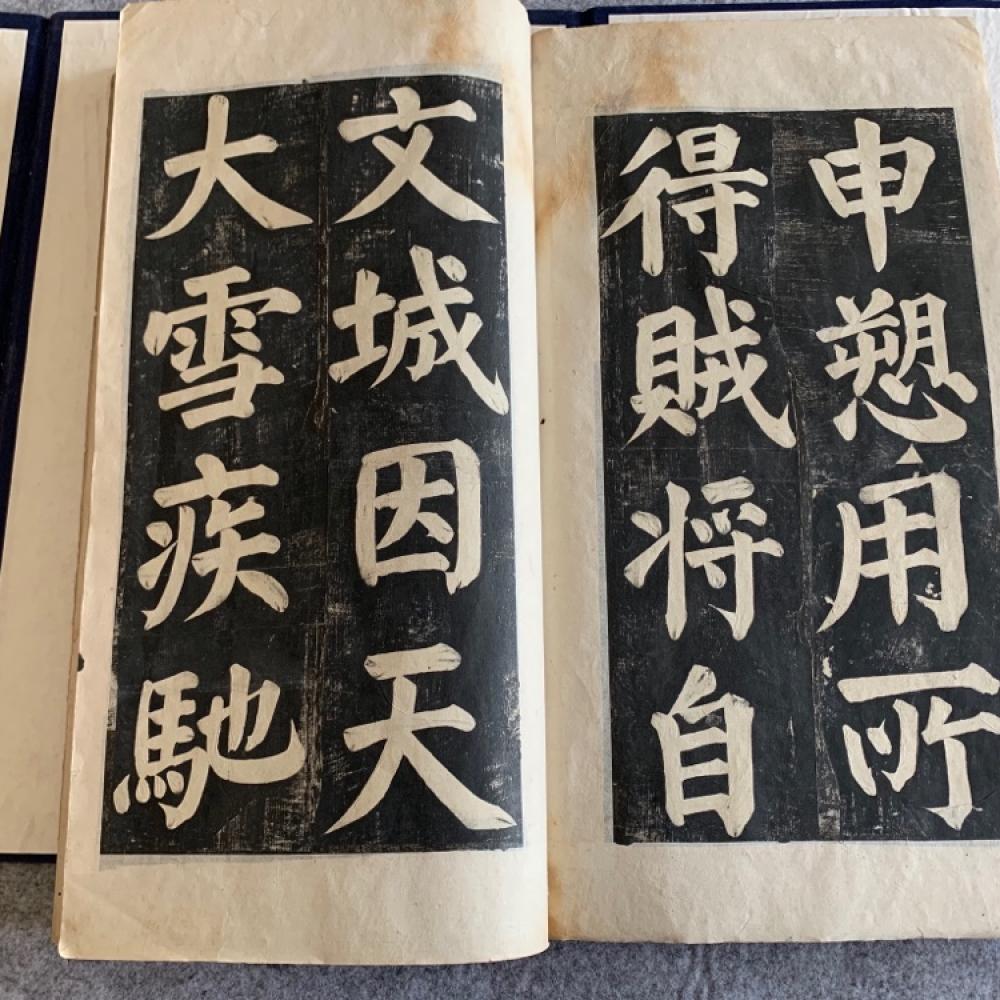 申愬用所
得賊将自
文城因天
大雪疾馳